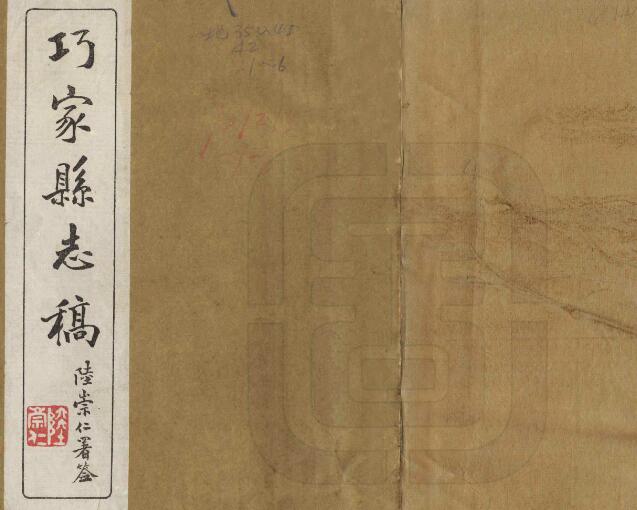 巧家縣志稿
陸崇仁署簽
陸崇仁
地350.45
42
1~6